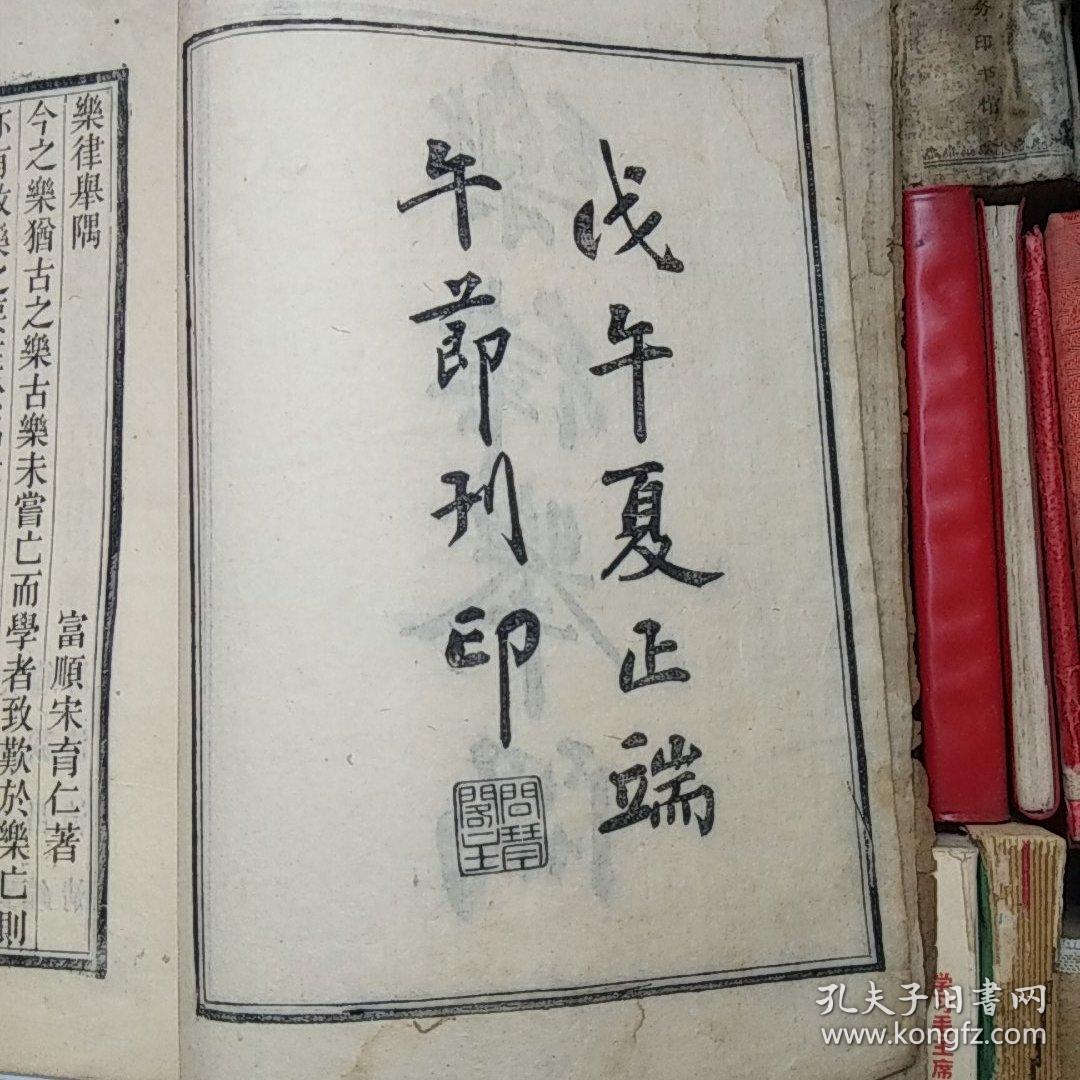 戊午夏正端
午節刊印
樂律舉隅
富順宋育仁著
今之樂猶古之樂古樂未嘗亡而學者致歎於樂亡則
务印书馆
孔夫子旧书网
www.kongfz.com